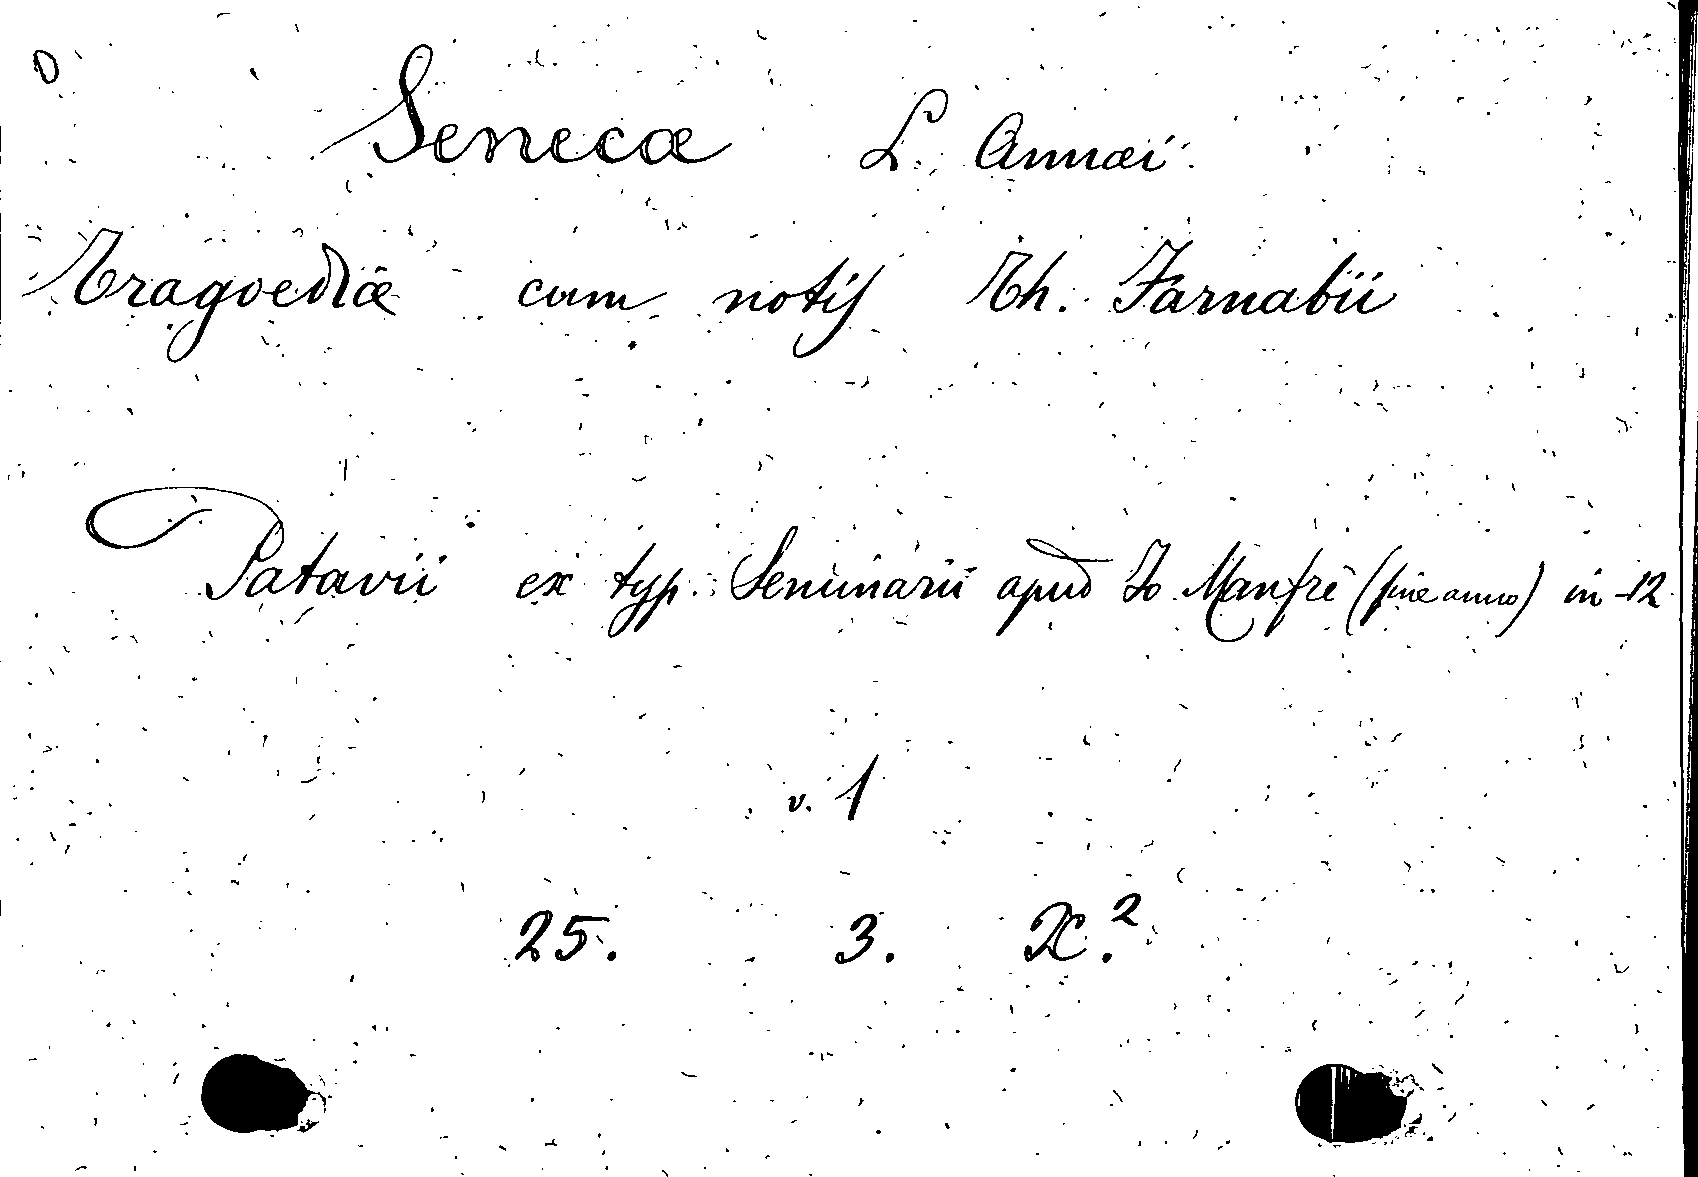 D
Senecæ L. Annæi
Tragoediæ cum notis Th. Farnabii
Patavii ex typ. Seminarii apud Jo Manfrè (sine anno) in-12
v. 1
25. 3. X.²